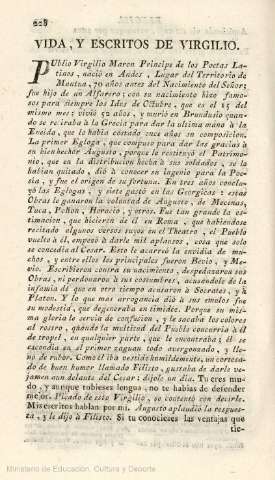 228
VIDA, Y ESCRITOS DE VIRGILIO.
PUblio Virgilio Maron Principe de los Poetas La-
tinos, nació en Andes, Lugar del Territorio de
Mantua, 70 años antes del Nacimiento del Señor;
fue hijo de un Alfarero; con su nacimiento hizo famo-
sos para siempre los Idus de Octubre, que es el 15 del
mismo mes; vivió 52 años, y murió en Brundusio quan-
do se retiraba à la Grecia para dar la ultima mano à la
Eneida, que le habia costado once años su composicion.
La primer Egloga, que compuso para dar las gracias à
su bienhechor Augusto, porque le restituyó el Patrimo-
nio, que en la distribucion hecha à sus soldados, se le
habian quitado, dió à conocer su ingenio para la Poe-
sía, y fue el origen de su fortuna. En tres años conclu-
yó las Eglogas, y siete gastó en las Georgicas: estas
Obras le ganaron la voluntad de Augusto, de Mecenas,
Tuca, Polion, Horacio, y otros. Fue tan grande la es-
timacion, que hicieron de él en Roma, que habiendose
recitado algunos versos suyos en el Theatro, el Pueblo
vuelto à él, empezó à darle mil aplausos, cosa que solo
se concedia al Cesar. Esto le acarreó la envidia de mu-
chos, y entre ellos los principales fueron Bevio, y Me-
vio. Escribieron contra su nacimiento, despedazaron sus
Obras, ni perdonaron à sus costumbres, acusandole de la
infamia de que en otro tiempo acusaron à Socrates, y à
Platon. Y lo que mas arrogancia dió à sus emulos fue
su modestia, que degeneraba en timidez. Porque su mis-
ma gloria le servia de confusion, y le sacaba los colores
al rostro, quando la multitud del Pueblo concurria à él
de tropel, en qualquier parte, que le encontraba; él se
escondia en el primer zaguan todo avergonzado, y lle-
no de rubor. Como él iba vestido humildemente, un corcoba-
do de buen humor llamado Filisto, gustaba de darle ve-
jamen aun delante del Cesar: dijole un dia. Tu eres mu-
do, y aunque tubieses lengua, no te habias de defender
mejor. Picado de esto Virgilio, se contentó con decirle.
Mis escritos hablan por mí. Augusto aplaudió la respues-
ta, y le dijo à Filisto. Si tu conocieses las ventajas que
tie-
Ministerio de Educación, Cultura y Deporte